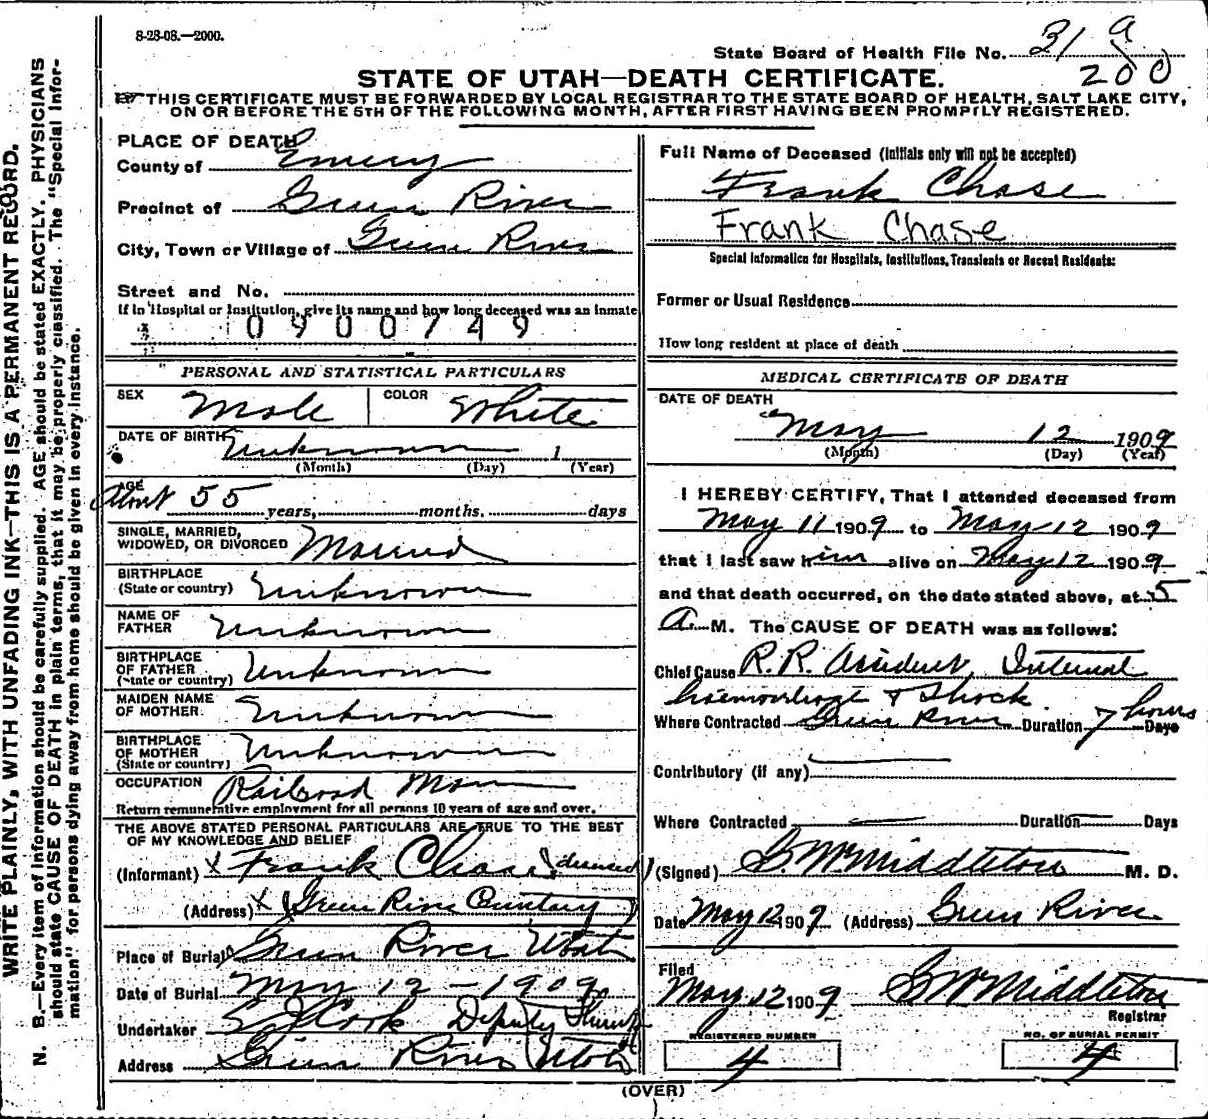 8-28-08.—2000.
State Board of Health File No. 31 9
200
STATE OF UTAH—DEATH CERTIFICATE.
THIS CERTIFICATE MUST BE FORWARDED BY LOCAL REGISTRAR TO THE STATE BOARD OF HEALTH, SALT LAKE CITY,
ON OR BEFORE THE 5TH OF THE FOLLOWING MONTH, AFTER FIRST HAVING BEEN PROMPTLY REGISTERED.
WRITE PLAINLY, WITH UNFADING INK—THIS IS A PERMANENT RECORD.
N. B.—Every item of information should be carefully supplied. AGE should be stated EXACTLY. PHYSICIANS
should state CAUSE OF DEATH in plain terms, that it may be properly classified. The "Special Infor-
mation" for persons dying away from home should be given in every instance.
PLACE OF DEATH
County of Emery
Precinct of Green River
City, Town or Village of Green River
Street and No.
If in Hospital or Institution, give its name and how long deceased was an inmate
0900749
PERSONAL AND STATISTICAL PARTICULARS
SEX Male COLOR White
DATE OF BIRTH Unknown 1
(Month) (Day) (Year)
AGE About 55 years, months. days
SINGLE, MARRIED,
WIDOWED, OR DIVORCED Married
BIRTHPLACE
(State or country) Unknown
NAME OF
FATHER Unknown
BIRTHPLACE
OF FATHER
(State or country) Unknown
MAIDEN NAME
OF MOTHER Unknown
BIRTHPLACE
OF MOTHER
(State or country) Unknown
OCCUPATION Railroad Man
Return remunerative employment for all persons 10 years of age and over.
THE ABOVE STATED PERSONAL PARTICULARS ARE TRUE TO THE BEST
OF MY KNOWLEDGE AND BELIEF
(Informant) x Frank Chase (deceased)
(Address) x (Green River Cemetery)
Place of Burial x Green River Utah
Date of Burial May 12 - 1909
Undertaker Cook Deputy Sheriff
Address x Green River Utah
Full Name of Deceased (Initials only will not be accepted)
Frank Chase
Frank Chase
Special Information for Hospitals, Institutions, Transients or Recent Residents:
Former or Usual Residence
How long resident at place of death
MEDICAL CERTIFICATE OF DEATH
DATE OF DEATH
May 12 1909
(Month) (Day) (Year)
I HEREBY CERTIFY, That I attended deceased from
May 11 1909 to May 12 1909
that I last saw him alive on May 12 1909
and that death occurred, on the date stated above, at 5
A. M. The CAUSE OF DEATH was as follows:
Chief Cause R. R. Accident Internal
haemorrhage & Shock
Where Contracted Green River Duration 7 hours Days
Contributory (if any)
Where Contracted Duration Days
(Signed) Middleton M. D.
Date May 12 1909 (Address) Green River
Filed
May 12 1909 Middleton
Registrar
REGISTERED NUMBER
4
NO. OF BURIAL PERMIT
4
(OVER)